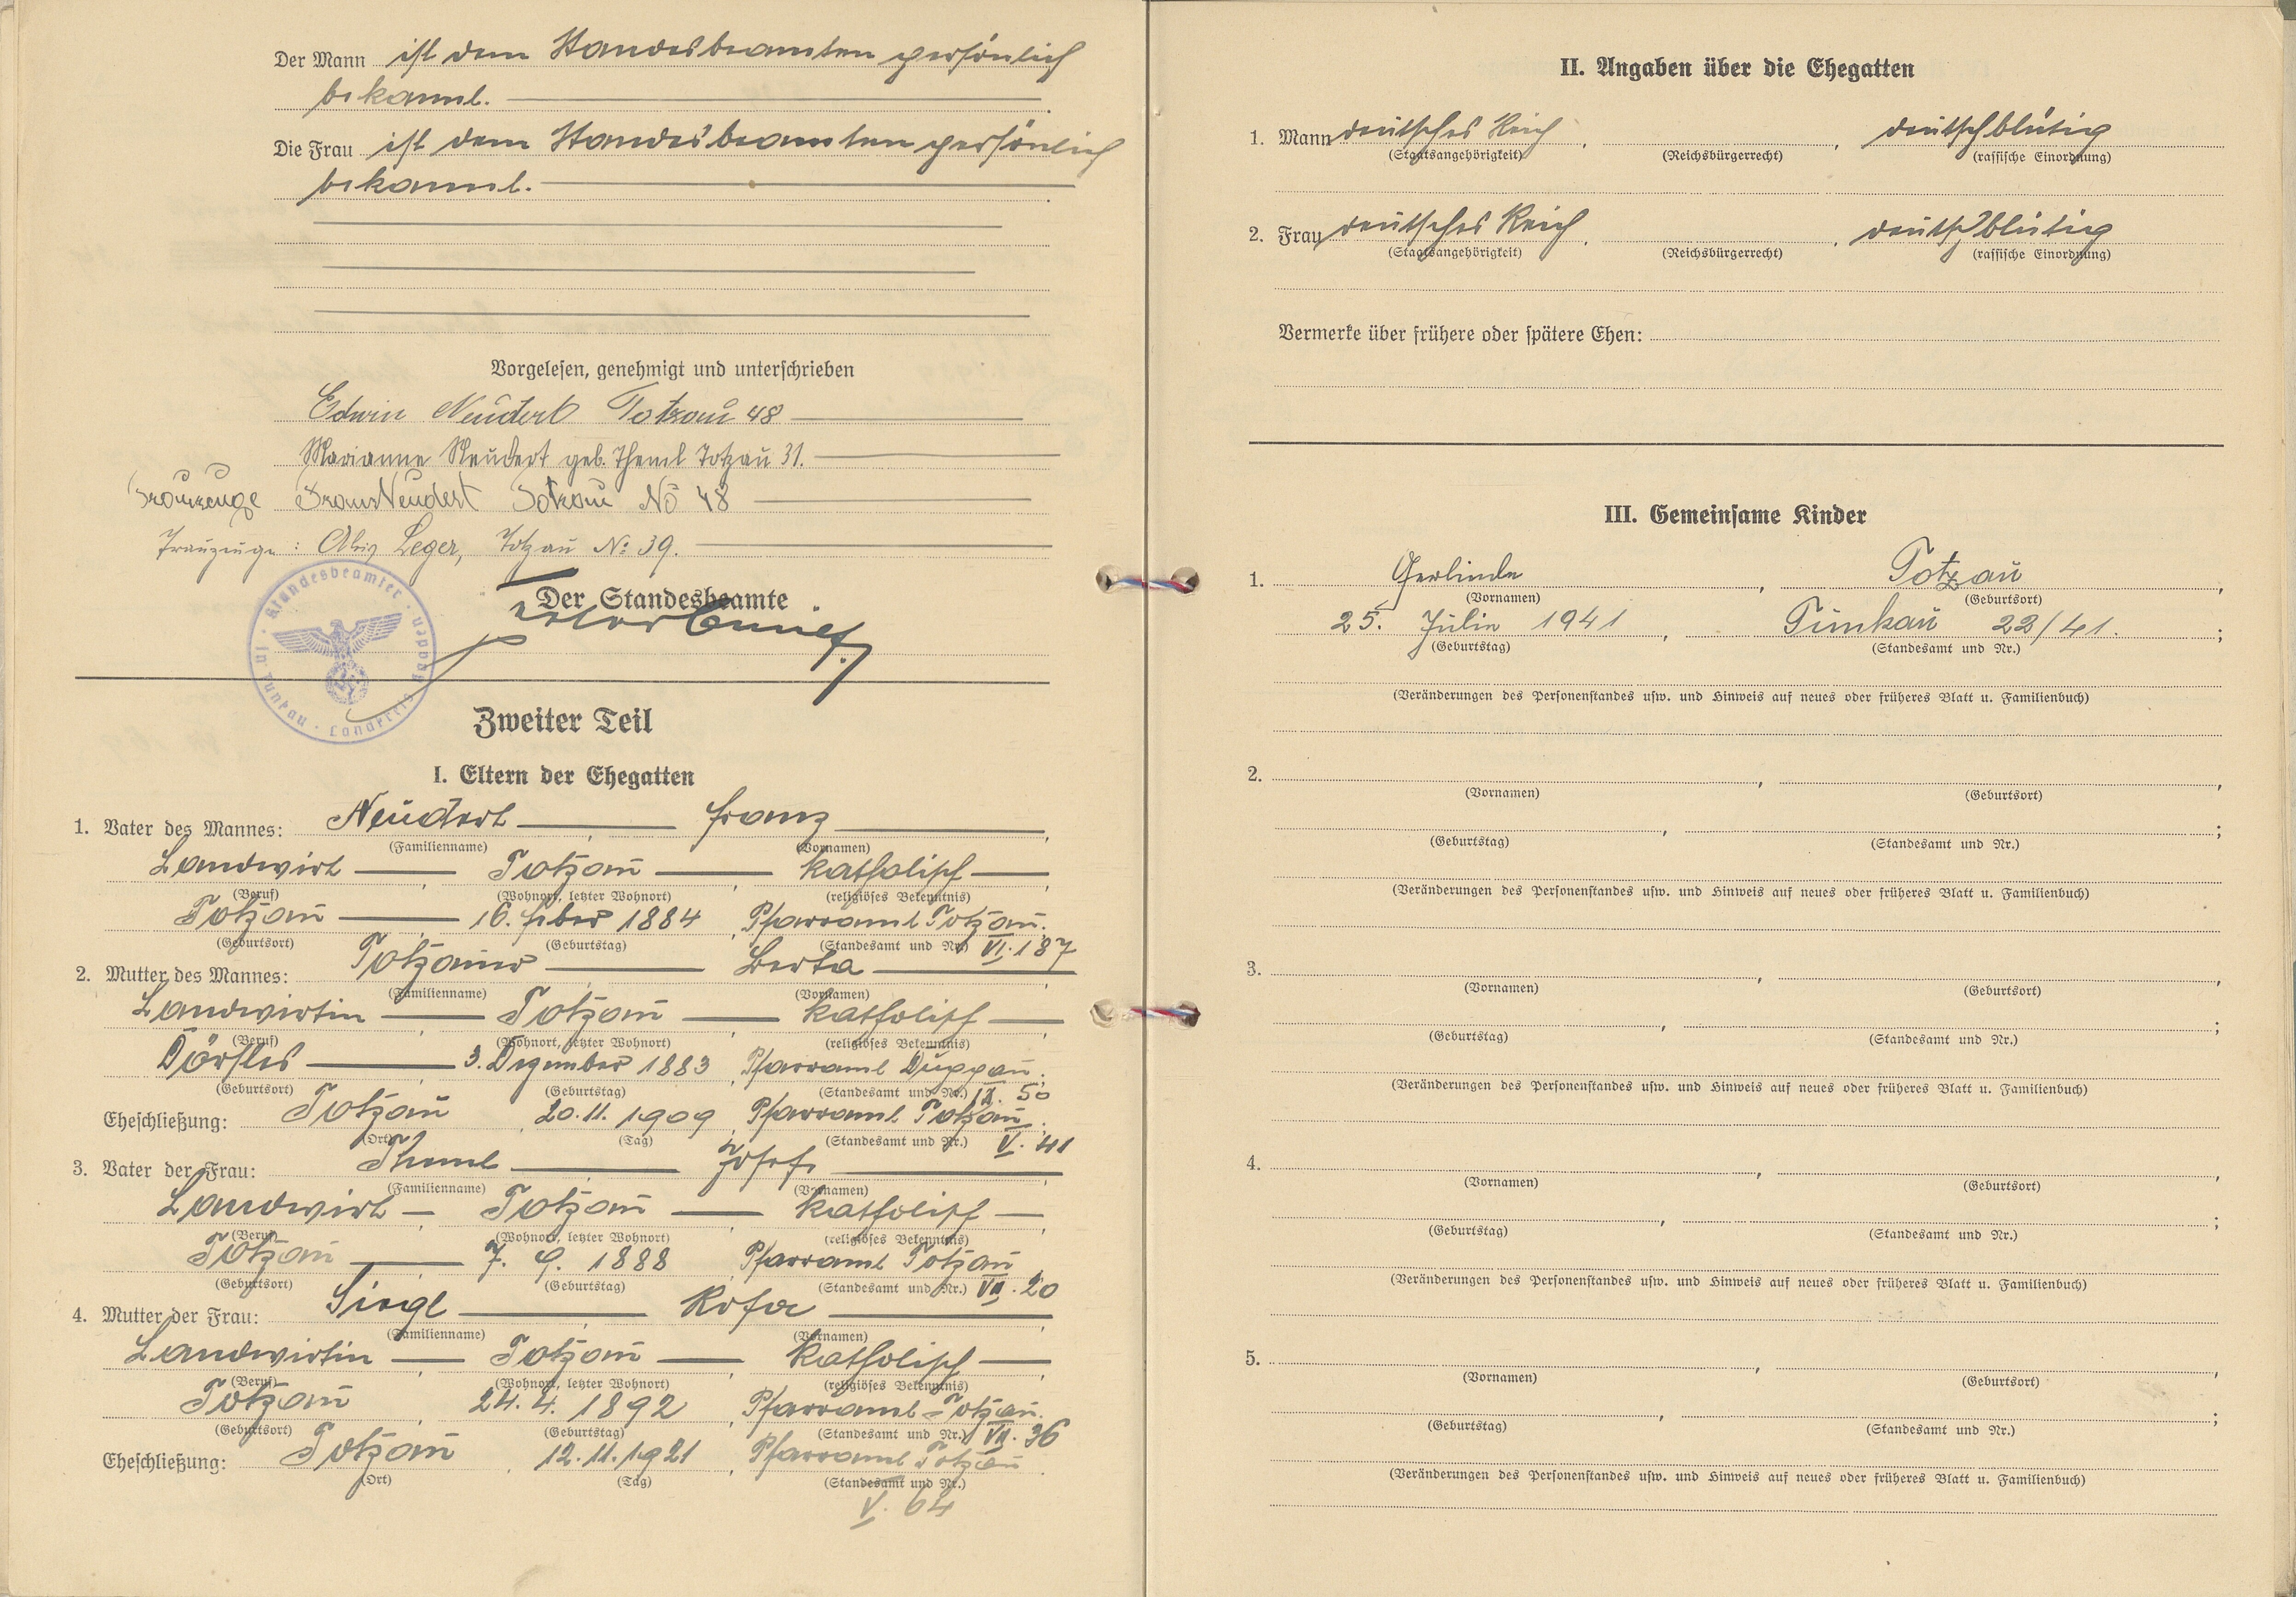 Der Mann ist dem Standesbeamten persönlich
bekannt.
Die Frau ist dem Standesbeamten persönlich
bekannt.
Vorgelesen, genehmigt und unterschrieben
Edwin Neudert Totzau 48
Marianne Neudert geb. Theml Totzau 31.
Trauzeuge Franz Neudert Totzau No 48
Trauzeuge: Alois Leger, Totzau No: 39.
Der Standesbeamte
Zweiter Teil
I. Eltern der Ehegatten
1. Vater des Mannes: Neudert Franz
(Familienname) (Vornamen)
Landwirt Totzau katholisch
(Beruf) (Wohnort, letzter Wohnort) (religiöses Bekenntnis)
Totzau 16. feber 1884 Pfarramt Totzau
(Geburtsort) (Geburtstag) (Standesamt und Nr.) VI. 187
2. Mutter des Mannes: Totzauer Berta
(Familienname) (Vornamen)
Landwirtin Totzau katholisch
(Beruf) (Wohnort, letzter Wohnort) (religiöses Bekenntnis)
Dörfles 3. Dezember 1883 Pfarramt Duppau
(Geburtsort) (Geburtstag) (Standesamt und Nr.) IX. 50
Eheschließung: Totzau 20.11.1909 Pfarramt Totzau
(Ort) (Tag) (Standesamt und Nr.) V. 41
3. Vater der Frau: Theml Josef
(Familienname) (Vornamen)
Landwirt Totzau katholisch
(Beruf) (Wohnort, letzter Wohnort) (religiöses Bekenntnis)
Totzau 7. 9. 1888 Pfarramt Totzau
(Geburtsort) (Geburtstag) (Standesamt und Nr.) VII. 20
4. Mutter der Frau: Siegl Rosa
(Familienname) (Vornamen)
Landwirtin Totzau katholisch
(Beruf) (Wohnort, letzter Wohnort) (religiöses Bekenntnis)
Totzau 24. 4. 1892 Pfarramt Totzau
(Geburtsort) (Geburtstag) (Standesamt und Nr.) VII. 36
Eheschließung: Totzau 12.11.1921 Pfarramt Totzau
(Ort) (Tag) (Standesamt und Nr.)
V. 64
II. Angaben über die Ehegatten
1. Mann deutsches Reich, , deutschblütig
(Staatsangehörigkeit) (Reichsbürgerrecht) (rassische Einordnung)
2. Frau deutsches Reich, , deutschblütig
(Staatsangehörigkeit) (Reichsbürgerrecht) (rassische Einordnung)
Vermerke über frühere oder spätere Ehen:
III. Gemeinsame Kinder
1. Gerlinde, Totzau,
(Vornamen) (Geburtsort)
25. Julin 1941, Tunkau 22/41. ;
(Geburtstag) (Standesamt und Nr.)
(Veränderungen des Personenstandes usw. und Hinweis auf neues oder früheres Blatt u. Familienbuch)
2. , ,
(Vornamen) (Geburtsort)
, ;
(Geburtstag) (Standesamt und Nr.)
(Veränderungen des Personenstandes usw. und Hinweis auf neues oder früheres Blatt u. Familienbuch)
3. , ,
(Vornamen) (Geburtsort)
, ;
(Geburtstag) (Standesamt und Nr.)
(Veränderungen des Personenstandes usw. und Hinweis auf neues oder früheres Blatt u. Familienbuch)
4. , ,
(Vornamen) (Geburtsort)
, ;
(Geburtstag) (Standesamt und Nr.)
(Veränderungen des Personenstandes usw. und Hinweis auf neues oder früheres Blatt u. Familienbuch)
5. , ,
(Vornamen) (Geburtsort)
, ;
(Geburtstag) (Standesamt und Nr.)
(Veränderungen des Personenstandes usw. und Hinweis auf neues oder früheres Blatt u. Familienbuch)